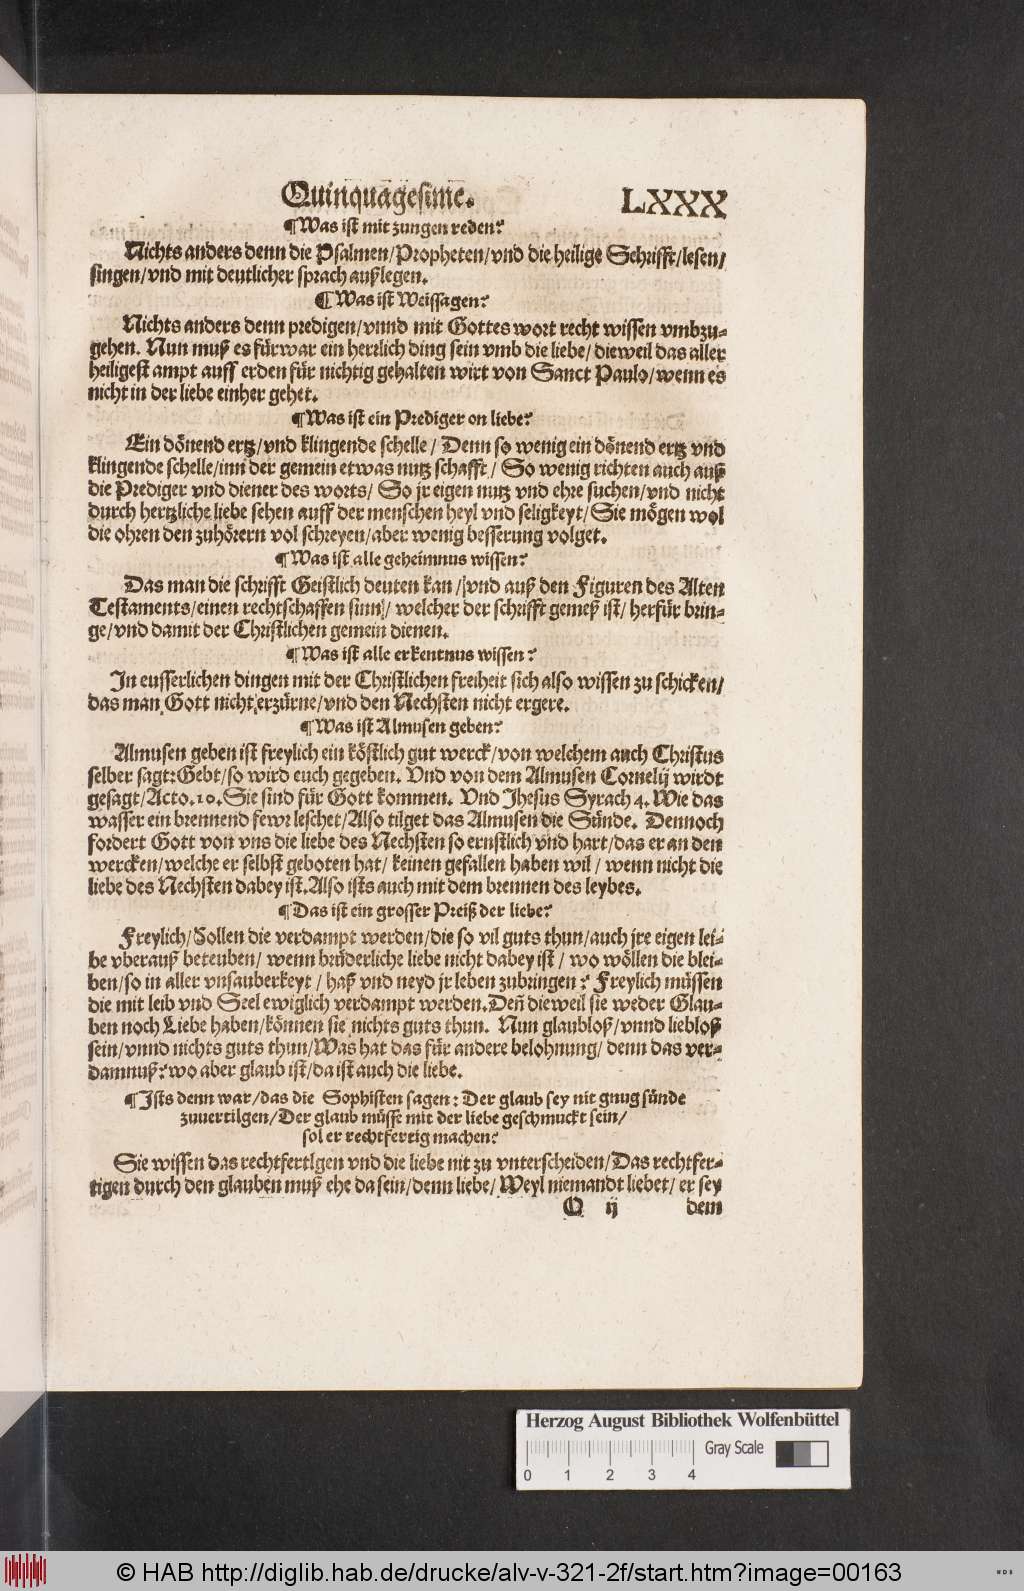 Quinquagesime. LXXX
¶Was ist mit zungen reden?
Nichts anders denn die Psalmen/Propheten/vnd die heilige Schrifft/lesen/
singen/vnd mit deutlicher sprach außlegen.
¶Was ist Weissagen?
Nichts anders denn predigen/vnnd mit Gottes wort recht wissen vmbzu-
gehen. Nun muß es fürwar ein herrlich ding sein vmb die liebe/dieweil das aller
heiligest ampt auff erden für nichtig gehalten wirt von Sanct Paulo/wenn es
nicht in der liebe einher gehet.
¶Was ist ein Prediger on liebe?
Ein dönend ertz/vnd klingende schelle/ Denn so wenig ein dönend ertz vnd
klingende schelle/inn der gemein etwas nutz schafft/ So wenig richten auch auß
die Prediger vnd diener des worts/ So jr eigen nutz vnd ehre suchen/vnd nicht
durch hertzliche liebe sehen auff der menschen heyl vnd seligkeyt/Sie mögen wol
die ohren den zuhörern vol schreyen/aber wenig besserung volget.
¶Was ist alle geheimnus wissen?
Das man die schrifft Geistlich deuten kan/vnd auß den Figuren des Alten
Testaments/einen rechtschaffen sinn/welcher der schrifft gemeß ist/herfür brin-
ge/vnd damit der Christlichen gemein dienen.
¶Was ist alle erkentnus wissen?
In eusserlichen dingen mit der Christlichen freiheit sich also wissen zu schicken/
das man Gott nicht erzürne/vnd den Nechsten nicht ergere.
¶Was ist Almusen geben?
Almusen geben ist freylich ein köstlich gut werck/von welchem auch Christus
selber sagt:Gebt/so wird euch gegeben. Vnd von dem Almusen Cornelij wirdt
gesagt/Acto.10.Sie sind für Gott kommen. Vnd Jhesus Syrach 4.Wie das
wasser ein brennend fewr leschet/Also tilget das Almusen die Sünde. Dennoch
fordert Gott von vns die liebe des Nechsten so ernstlich vnd hart/das er an den
wercken/welche er selbst geboten hat/ keinen gefallen haben wil/ wenn nicht die
liebe des Nechsten dabey ist.Also ists auch mit dem brennen des leybes.
¶Das ist ein grosser Preiß der liebe?
Freylich/Sollen die verdampt werden/die so vil guts thun/auch jre eigen lei-
be vberauß beteuben/ wenn brüderliche liebe nicht dabey ist/ wo wöllen die blei-
ben/so in aller vnsauberkeyt/ haß vnd neyd jr leben zubringen? Freylich müssen
die mit leib vnd Seel ewiglich verdampt werden.Deñ dieweil sie weder Glau-
ben noch Liebe haben/können sie nichts guts thun. Nun glaubloß/vnnd liebloß
sein/vnnd nichts guts thun/Was hat das für andere belohnung/ denn das ver-
damnuß? wo aber glaub ist/da ist auch die liebe.
¶Ists denn war/das die Sophisten sagen: Der glaub sey nit gnug sünde
zuuertilgen/Der glaub müsse mit der liebe geschmuckt sein/
sol er rechtfertig machen?
Sie wissen das rechtfertigen vnd die liebe nit zu vnterscheiden/Das rechtfer-
tigen durch den glauben muß ehe da sein/denn liebe/ Weyl niemandt liebet/ er sey
Q ij dem
Herzog August Bibliothek Wolfenbüttel
Gray Scale
0 1 2 3 4
© HAB http://diglib.hab.de/drucke/alv-v-321-2f/start.htm?image=00163